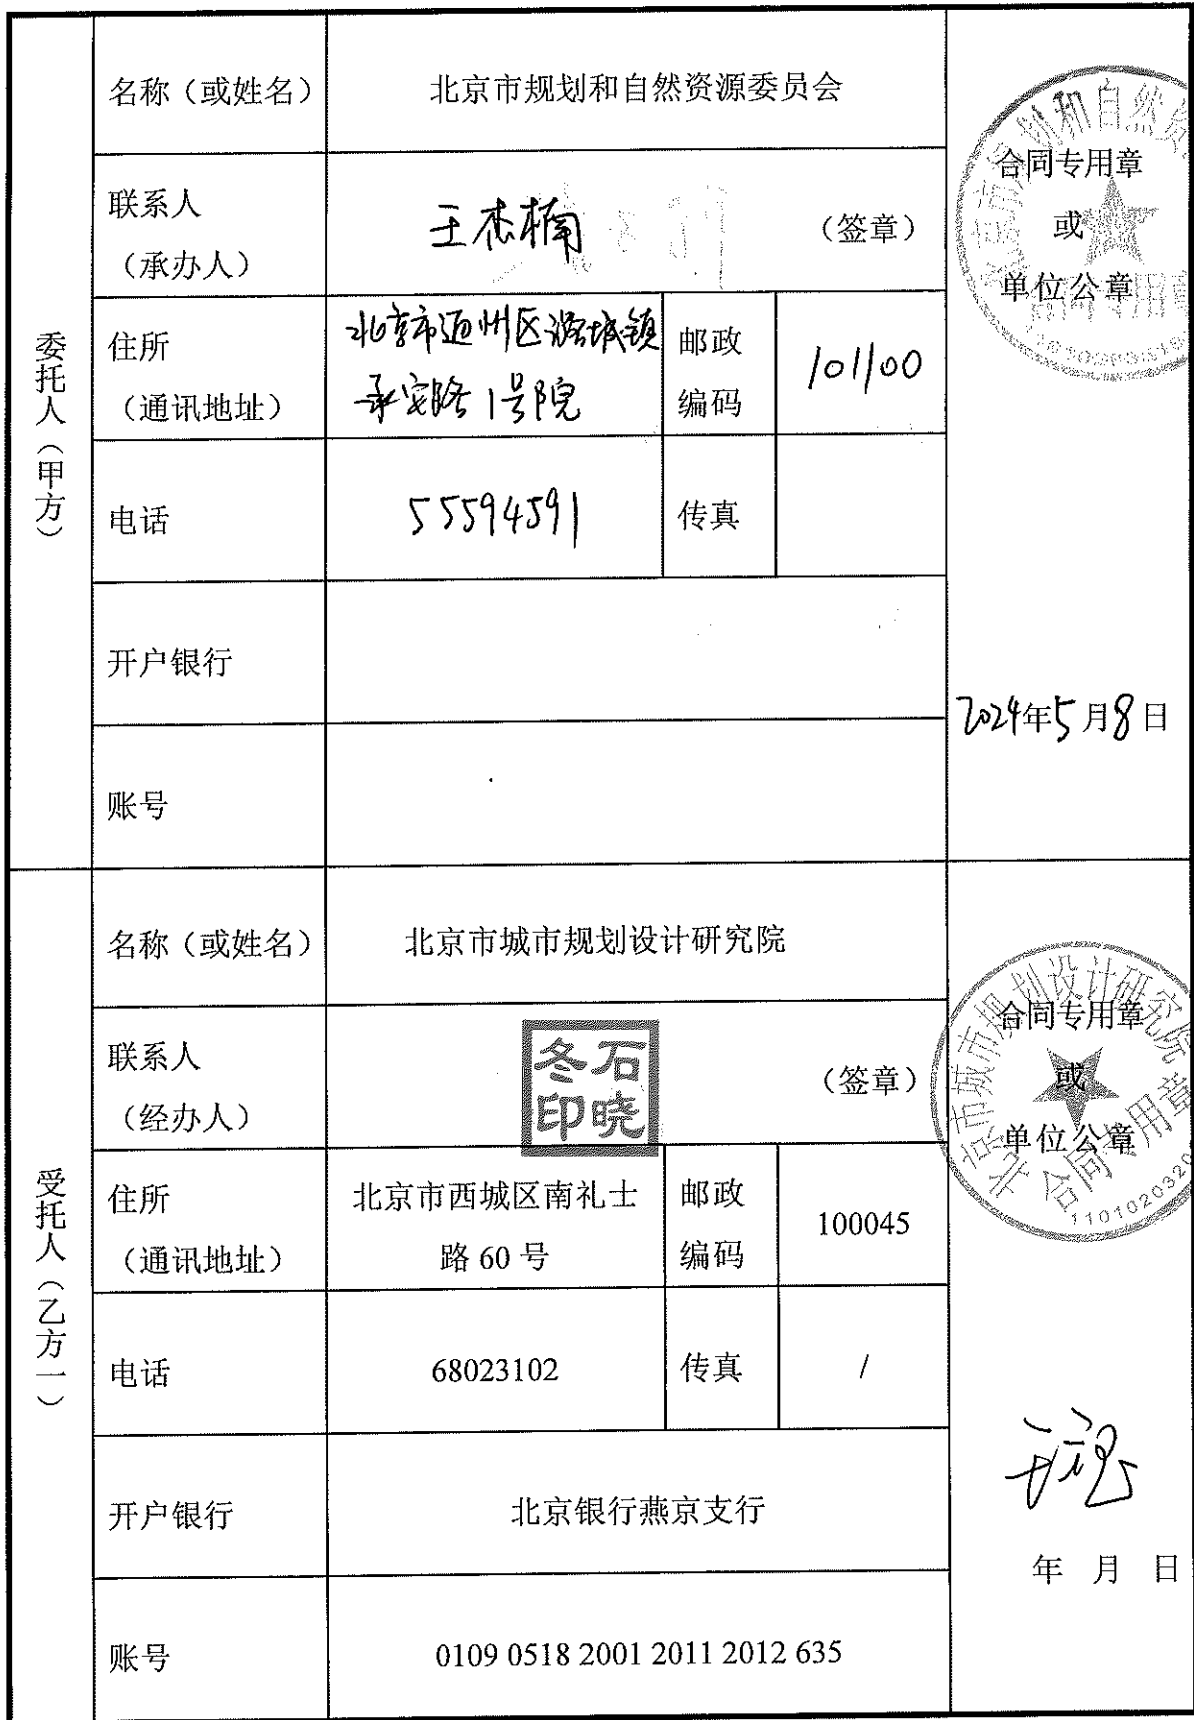 委托人（甲方）
名称（或姓名）
北京市规划和自然资源委员会
联系人
（承办人）
王杰楠
（签章）
住所
（通讯地址）
北京市通州区潞城镇
承安路1号院
邮政
编码
101100
电话
55594591
传真
开户银行
账号
合同专用章
或
单位公章
2024年5月8日
受托人（乙方一）
名称（或姓名）
北京市城市规划设计研究院
联系人
（经办人）
石晓
冬印
（签章）
住所
（通讯地址）
北京市西城区南礼士
路 60 号
邮政
编码
100045
电话
68023102
传真
/
开户银行
北京银行燕京支行
账号
0109 0518 2001 2011 2012 635
北京市城市规划设计研究院
合同专用章
合同专用章
或
单位公章
年 月 日